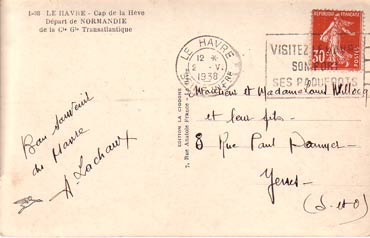 1-38 LE HAVRE - Cap de la Hève
Départ de NORMANDIE
de la Cie Gle Transatlantique
LE HAVRE
12
2 - V
1938
VISITEZ LE HAVRE
SON PORT
SES PAQUEBOTS
30
EDITION LA CIGOGNE
7, Rue Anatole France - Le Havre
Bon Souvenir
du Havre
A. Lachaux
Monsieur et Madame
et leur fils -
8 Rue Paul Doumer -
Yerres -
(S. et O)